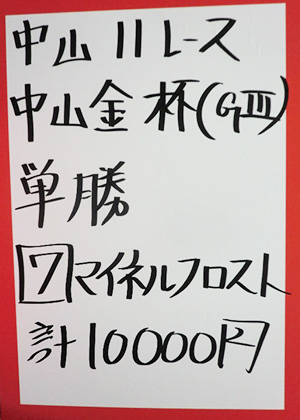 中山11レース
中山金杯(GⅢ)
単勝
7マイネルフロスト
計10000円